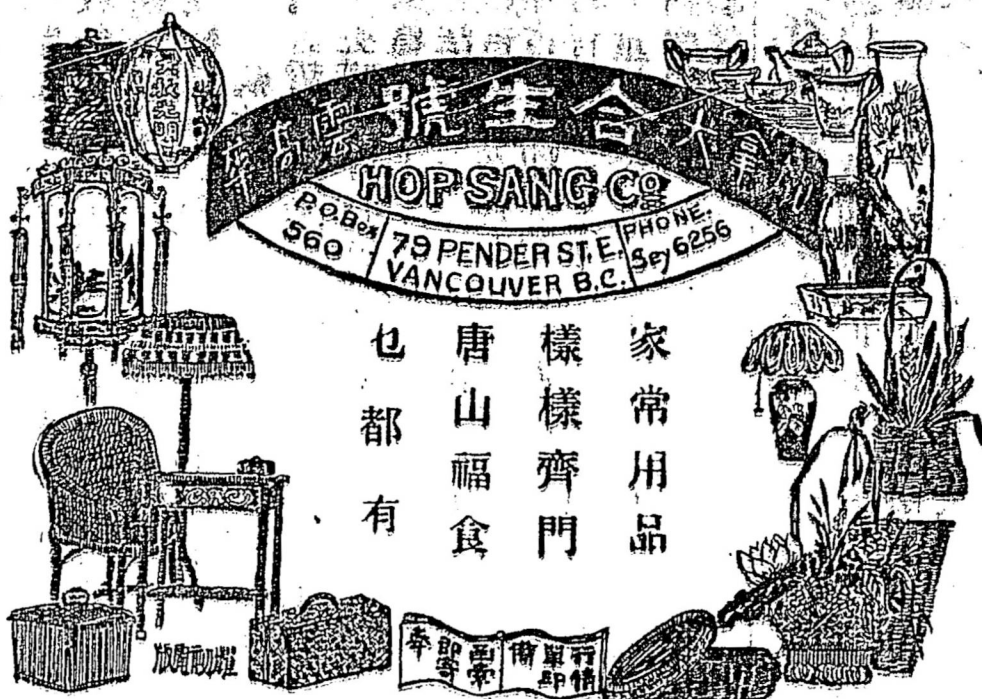 加拿大 合生號 雲高華
HOP SANG Co.
P.O. Box 560
79 PENDER ST. E.
VANCOUVER B.C.
PHONE. Sey 6256
大放光明
家常用品
樣樣齊門
唐山福食
乜都有
行情
單印
備
函索
即寄
奉